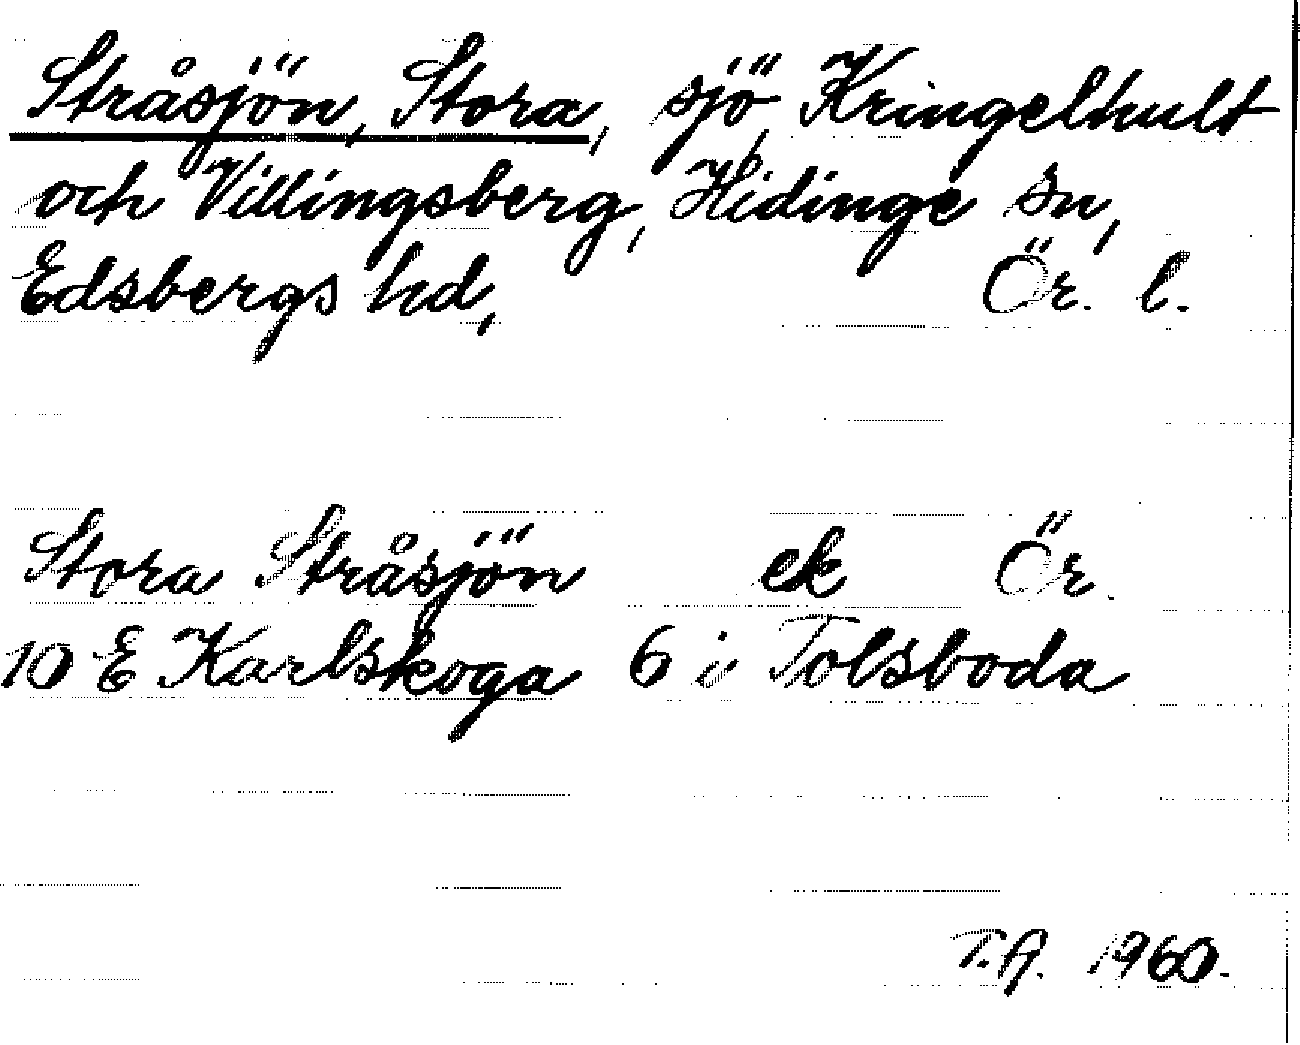 Stråsjön, Stora, sjö, Kringelhult
och Villingsberg, Hidinge sn,
Edsbergs hd, Ör. l.
Stora Stråsjön ek Ör.
10 E Karlskoga 6 i Tolsboda
T.A. 1960.